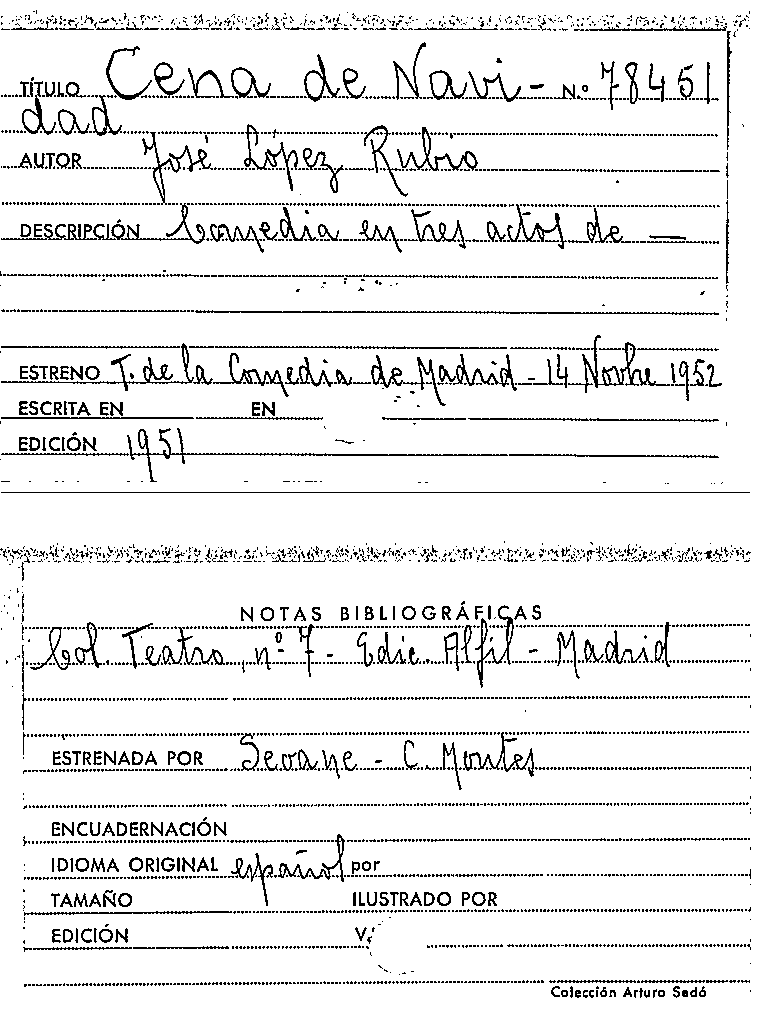 TÍTULO Cena de Navi- N.º 78451
dad
AUTOR José López Rubio
DESCRIPCIÓN Comedia en tres actos de —
ESTRENO T. de la Comedia de Madrid - 14 Novbre 1952
ESCRITA EN EN
EDICIÓN 1951
NOTAS BIBLIOGRÁFICAS
Col. Teatro, nº 7 - Edic. Alfil - Madrid
ESTRENADA POR Seoane - C. Montes
ENCUADERNACIÓN
IDIOMA ORIGINAL español por
TAMAÑO ILUSTRADO POR
EDICIÓN
Colección Arturo Sedó